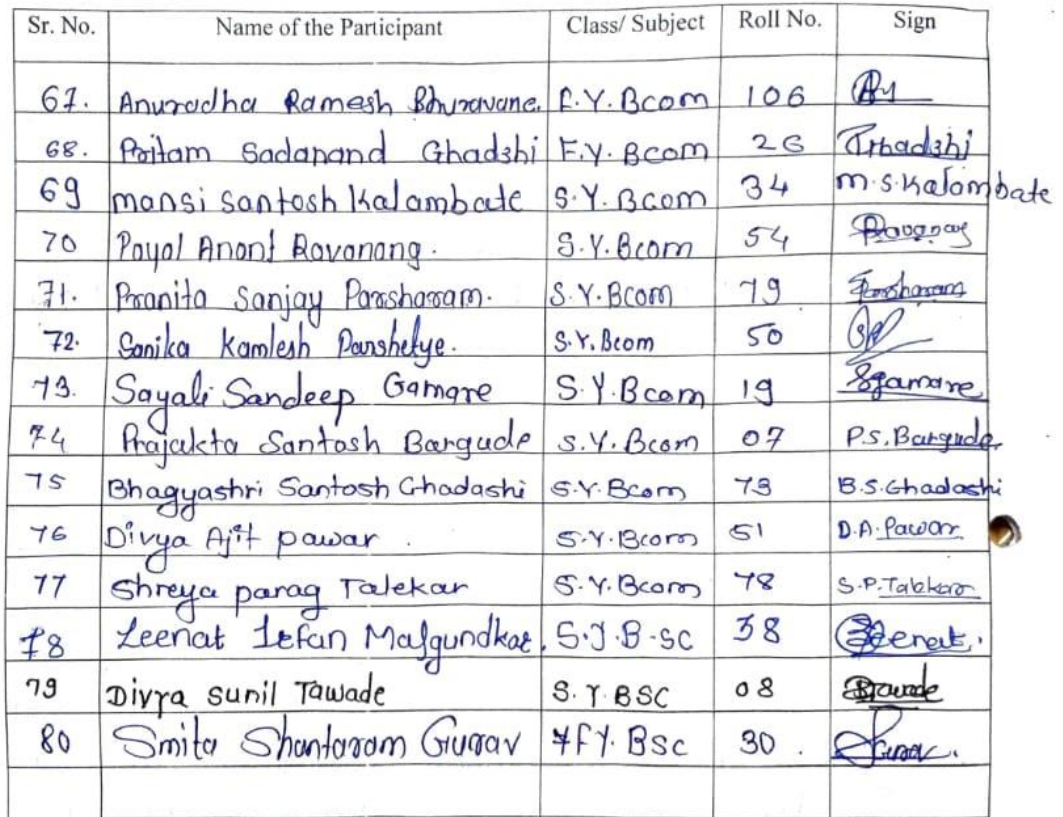 Sr. No. Name of the Participant Class/ Subject Roll No. Sign
67. Anuradha Ramesh Bhuravane. F.Y.Bcom 106
68. Pritam Sadanand Ghadshi F.Y.Bcom 26 Ghadshi
69 mansi santosh Kalambate S.Y.Bcom 34 m.s.Kalambate
70 Payal Anant Ravanang. S.Y.Bcom 54 Ravanang
71. Pranita Sanjay Parsharam. S.Y.Bcom 79 Parsharam
72. Sanika Kamlesh Parshetye. S.Y.Bcom 50
73. Sayali Sandeep Gamare S.Y.Bcom 19 Sgamare
74 Prajakta Santosh Bargude S.Y.Bcom 07 P.S.Bargude
75 Bhagyashri Santosh Ghadashi S.Y.Bcom 73 B.S.Ghadashi
76 Divya Ajit pawar. S.Y.Bcom 51 D.A.Pawar
77 Shreya parag Talekar S.Y.Bcom 78 S.P.Talekar
78 Zeenat Irfan Malgundkar. S.Y.B.sc 38 Zeenat.
79 Divya sunil Tawade S.Y.BSC 08 Dtawade
80 Smita Shantaram Gurav FY.BSc 30. Gurav.